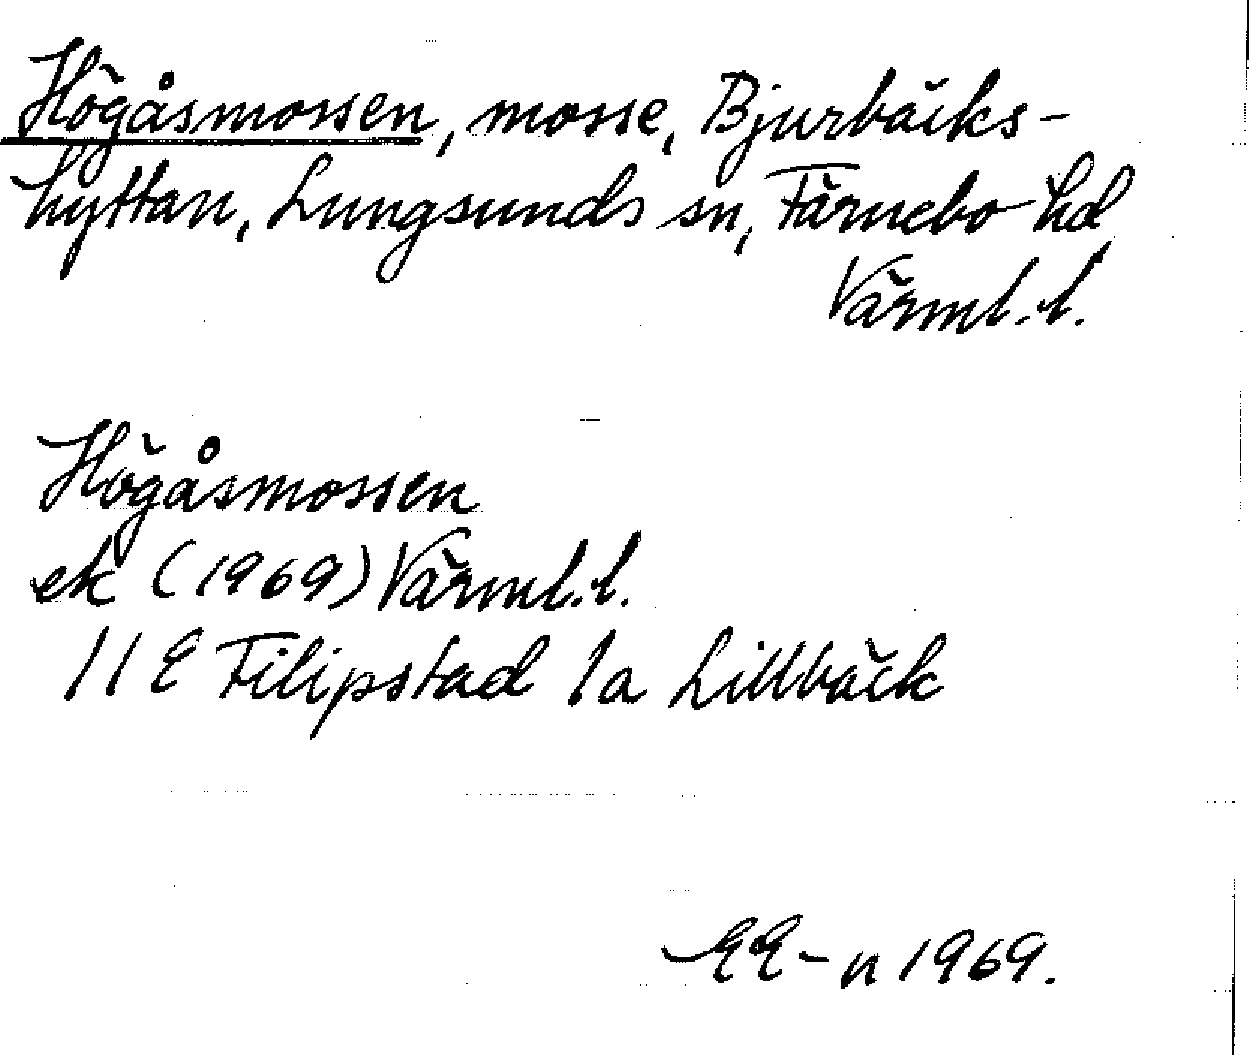 Högåsmossen, mosse, Bjurbäcks-
hyttan, Lungsunds sn, Färnebo hd
Värml. l.
Högåsmossen
ek (1969) Värml. l.
11 E Filipstad 1a Lillbäck
EE-n 1969.